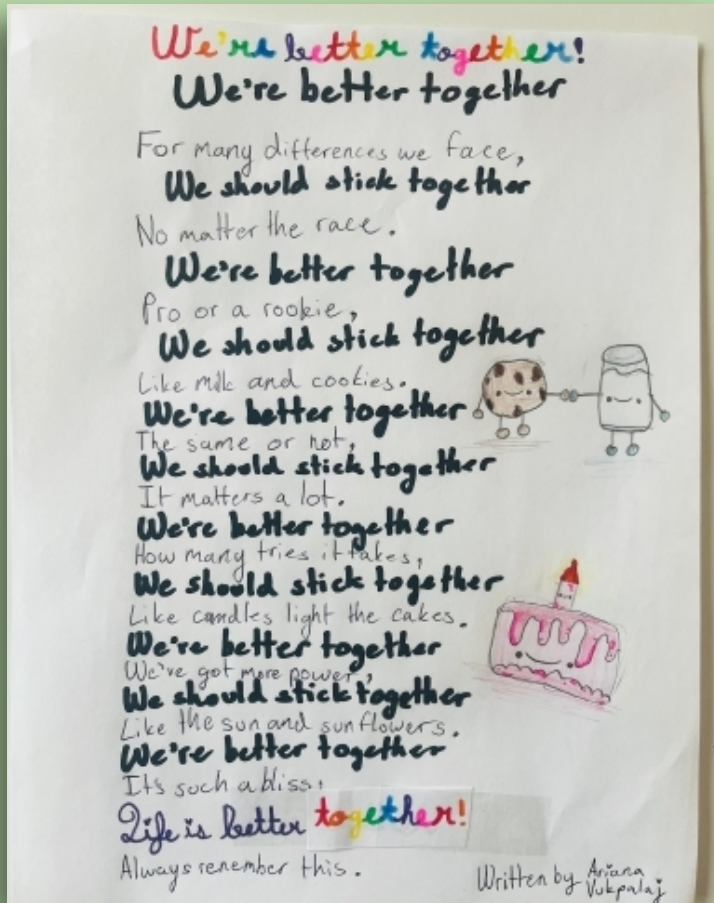 We're better together!
We're better together
For many differences we face,
We should stick together
No matter the race.
We're better together
Pro or a rookie,
We should stick together
Like milk and cookies.
We're better together
The same or not,
We should stick together
It matters a lot.
We're better together
How many tries it takes,
We should stick together
Like candles light the cakes.
We're better together
We've got more power,
We should stick together
Like the sun and sunflowers.
We're better together
It's such a bliss,
Life is better together!
Always remember this.
Written by Ariana
Vukpalaj